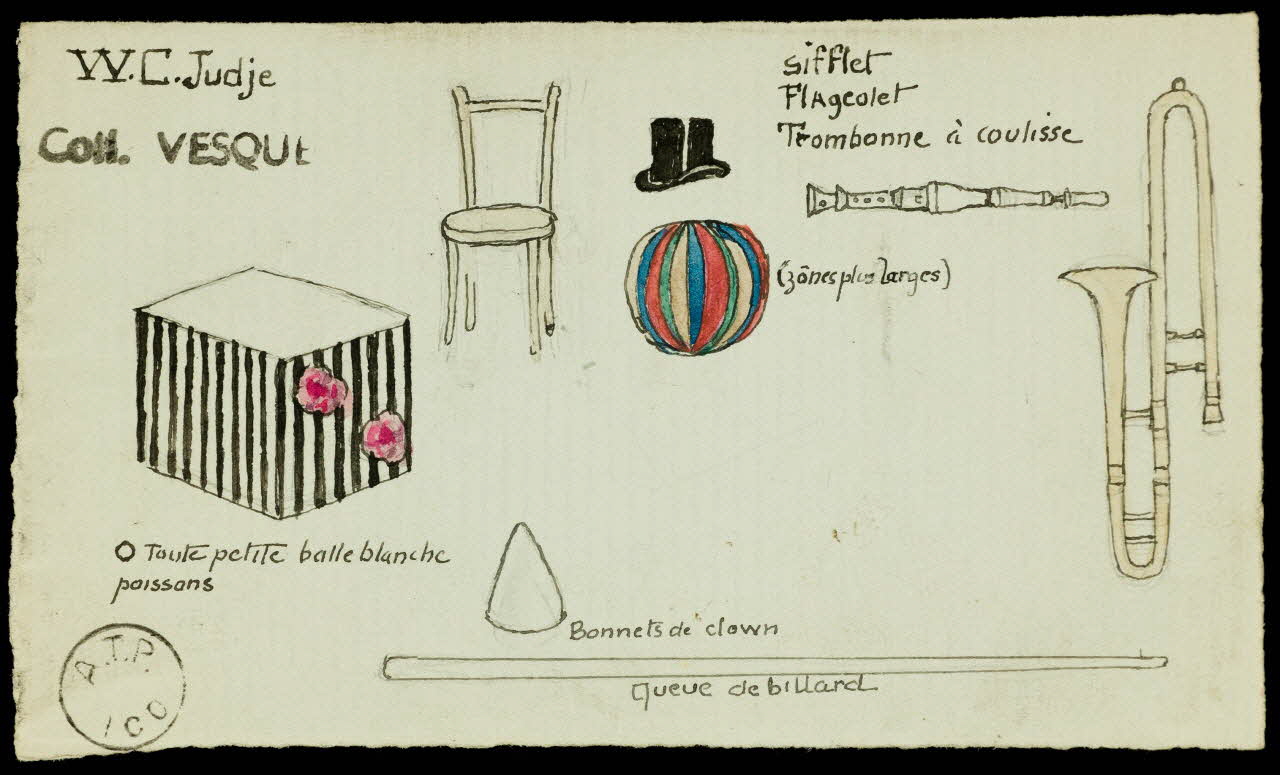 W.C. Judje
Coll. VESQUE
Sifflet
Flageolet
Trombonne à coulisse
(zônes plus larges)
Toute petite balle blanche
poissons
Bonnets de clown
Queue de billard
A.T.P.
100